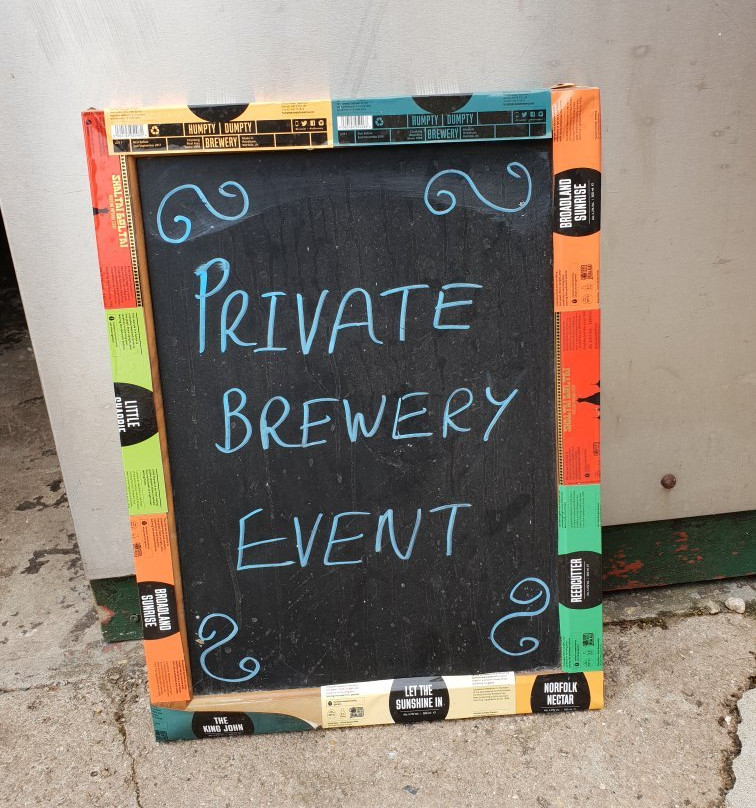 HUMPTY DUMPTY
BREWERY
HUMPTY DUMPTY
BREWERY
SHALTAI BOLTAI
BROADLAND
SUNRISE
PRIVATE
BREWERY
EVENT
LITTLE
SHALTAI BOLTAI
BROADLAND
SUNRISE
REEDCUTTER
THE
KING JOHN
LET THE
SUNSHINE IN
NORFOLK
NECTAR